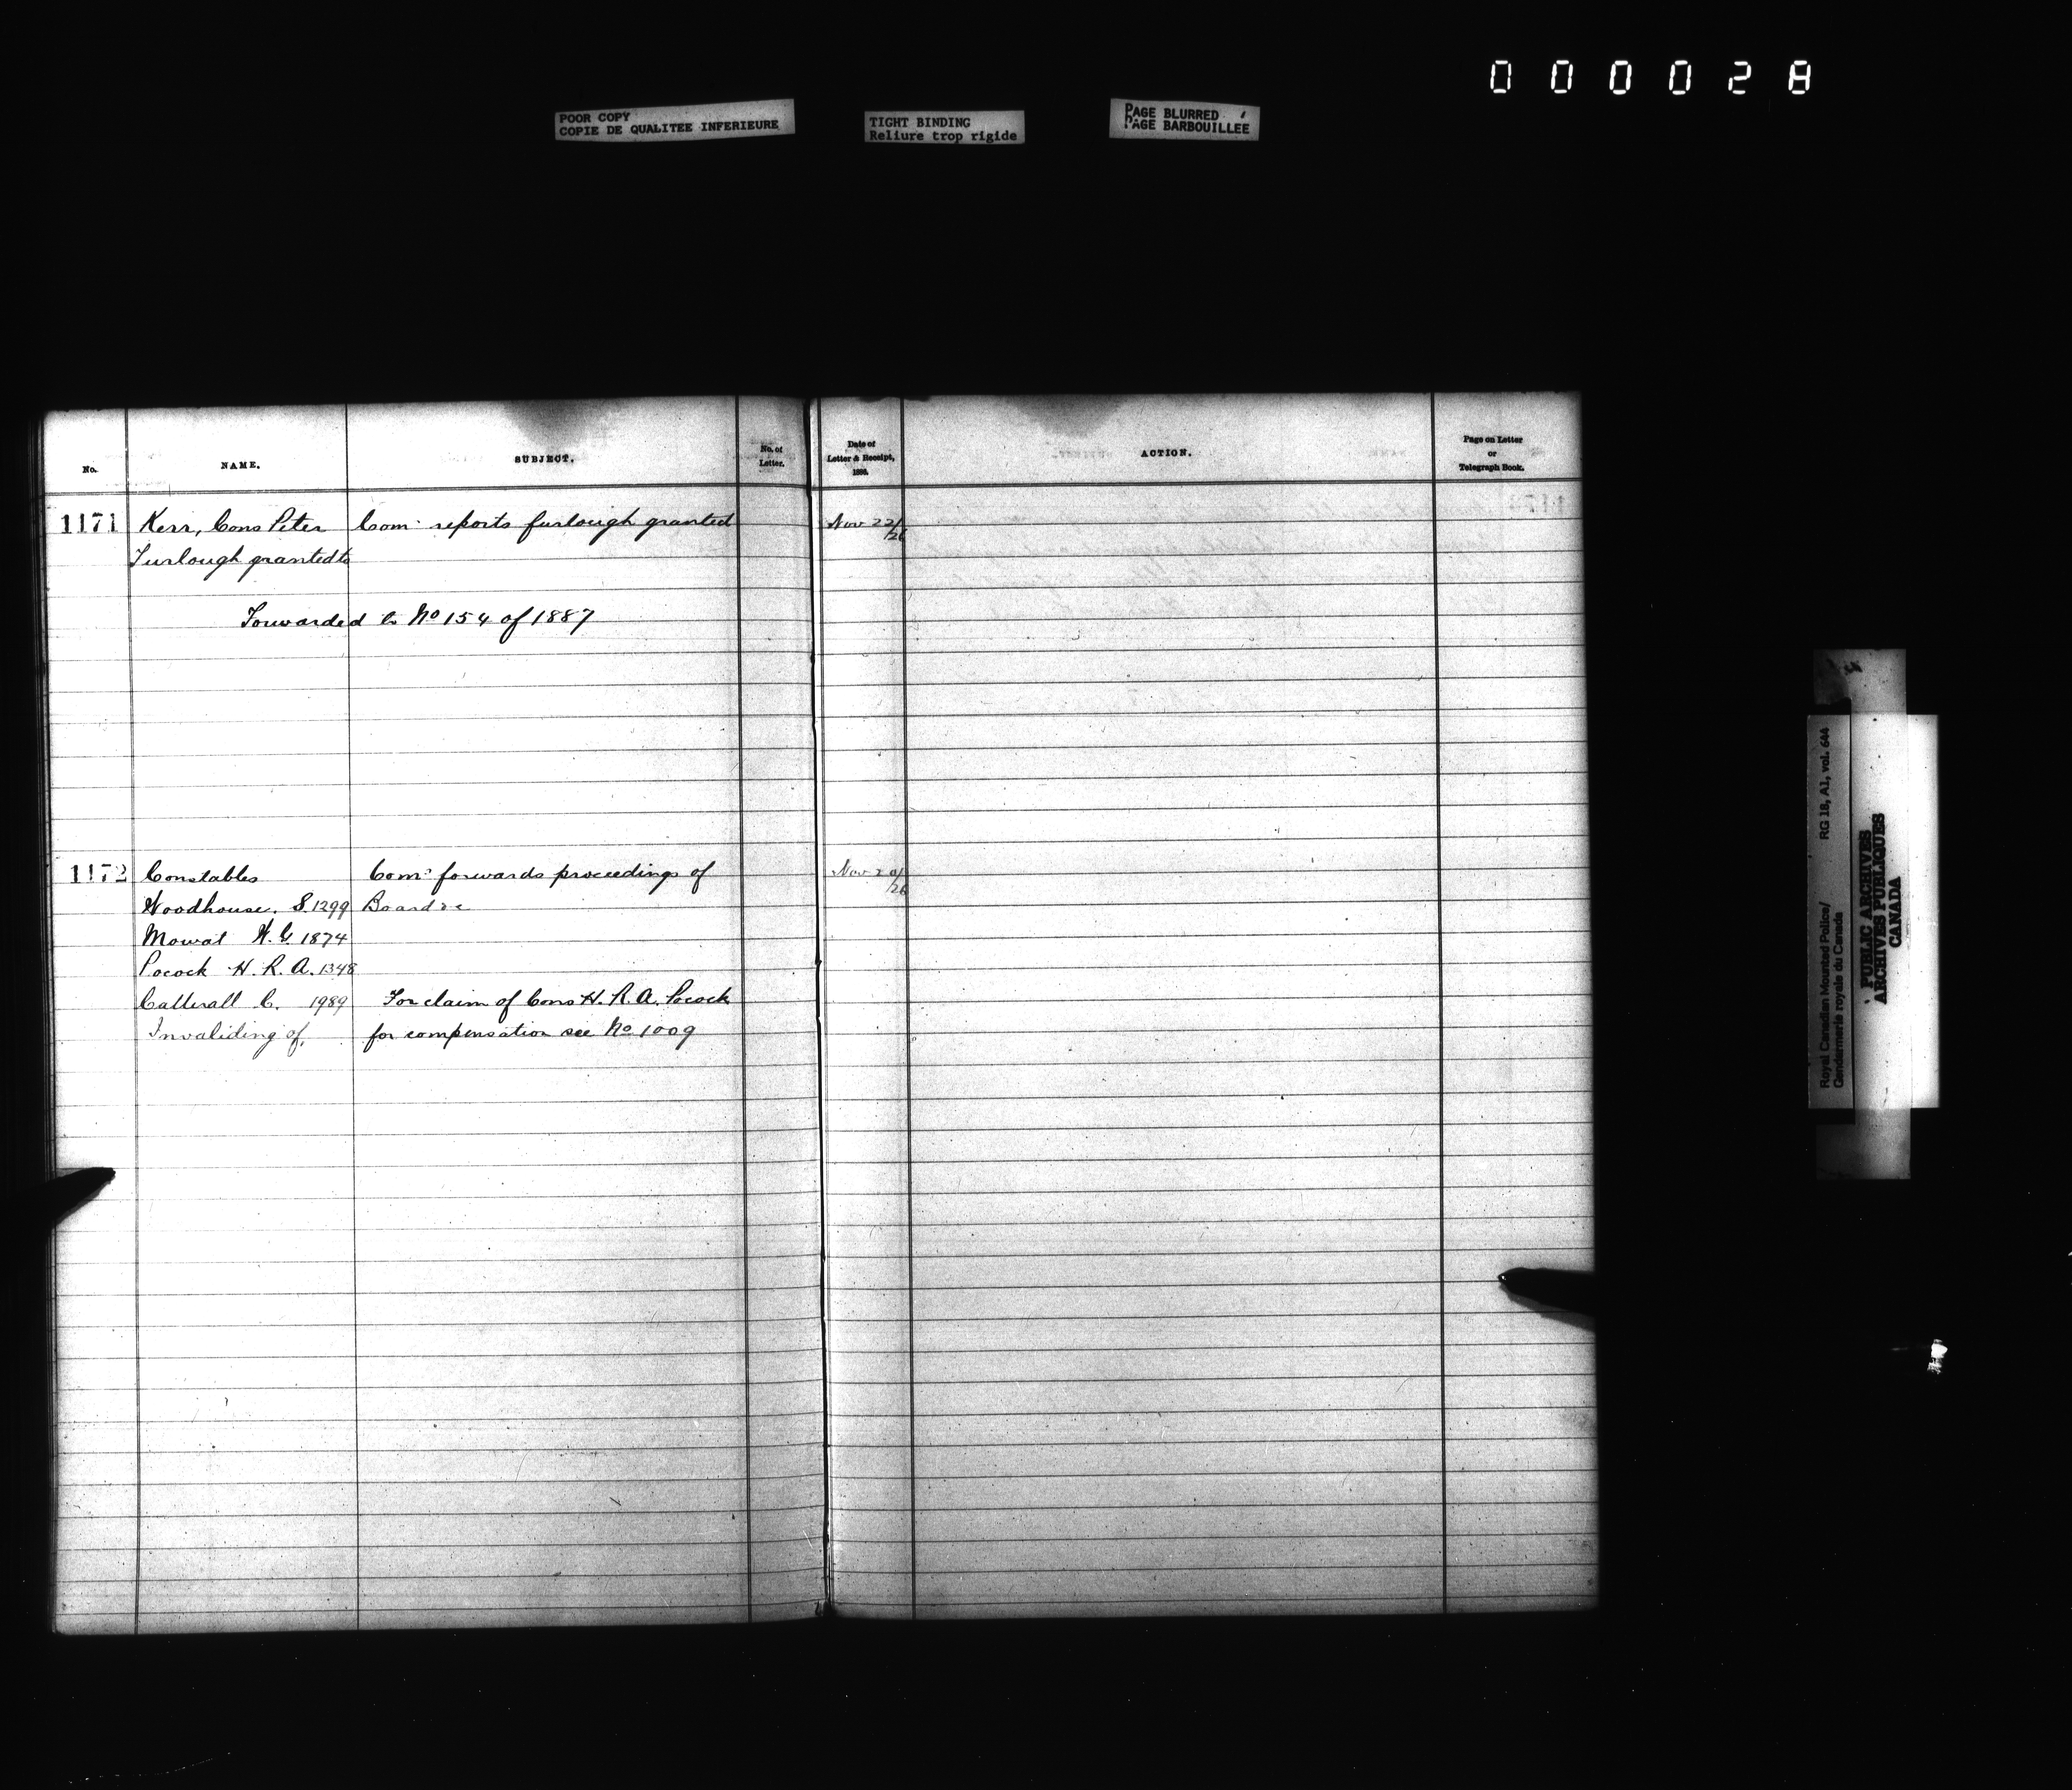 000028
POOR COPY
COPIE DE QUALITEE INFERIEURE
TIGHT BINDING
Reliure trop rigide
PAGE BLURRED
PAGE BARBOUILLEE
No. NAME. SUBJECT. No. of Letter. Date of Letter & Receipt, 1886. ACTION. Page on Letter or Telegraph Book.
1171 Kerr, Cons Peter Com. reports furlough granted Nov 22/26
Furlough granted to
Forwarded to No 154 of 1887
1172 Constables Comr forwards proceedings of Nov 20/26
Woodhouse. S. 1299 Board re
Mowat W. G 1874
Pocock H. R. A. 1348
Catterall C. 1989 For claim of Cons H. R. A. Pocock
Invaliding of. for compensation see No 1009
Royal Canadian Mounted Police/ RG 18, A1, vol. 644
Gendarmerie royale du Canada
PUBLIC ARCHIVES
ARCHIVES PUBLIQUES
CANADA